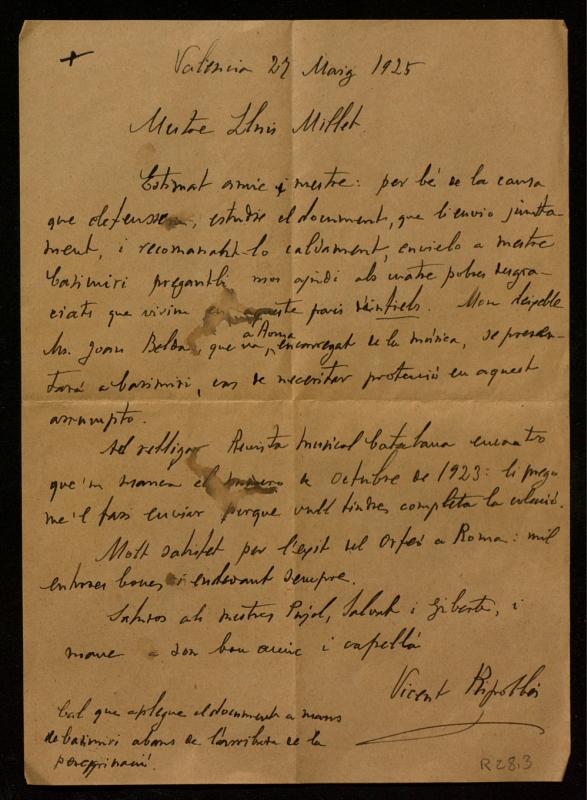 +
Valencia 27 Maig 1925
Mestre Lluis Millet
Estimat amic y mestre: per bé de la causa
que defensem, estudie el document, que li envio junta-
ment, i recomanantlo caldament, envielo a mestre
Casimiri pregantli mos ajudi als cuatre pobres desgra-
ciats que vivim en aqueste pais
Mon deixeble
Mn. Joan Belda, que va, a Roma encarregat de la música, se presen-
tará a Casimiri, cas de necesitar protenció en aquest
assumpto.
Al relligar Revista Musical Catalana encontro
que'm manca el número de Octubre de 1923: li prego
me'l fasi enviar perque vull tindre completa la colecció.
Molt satisfet per l'exit del Orfeó a Roma: mil
enhores bones i endevant sempre.
Saluros als mestres Pujol, Salvat i Gibert, i
mane a son bon amic i capellá
Vicent Ripollés
Cal que aplegue el document a mans
de Casimiri abans de l'arribada de la
peregrinació.
R 28.3